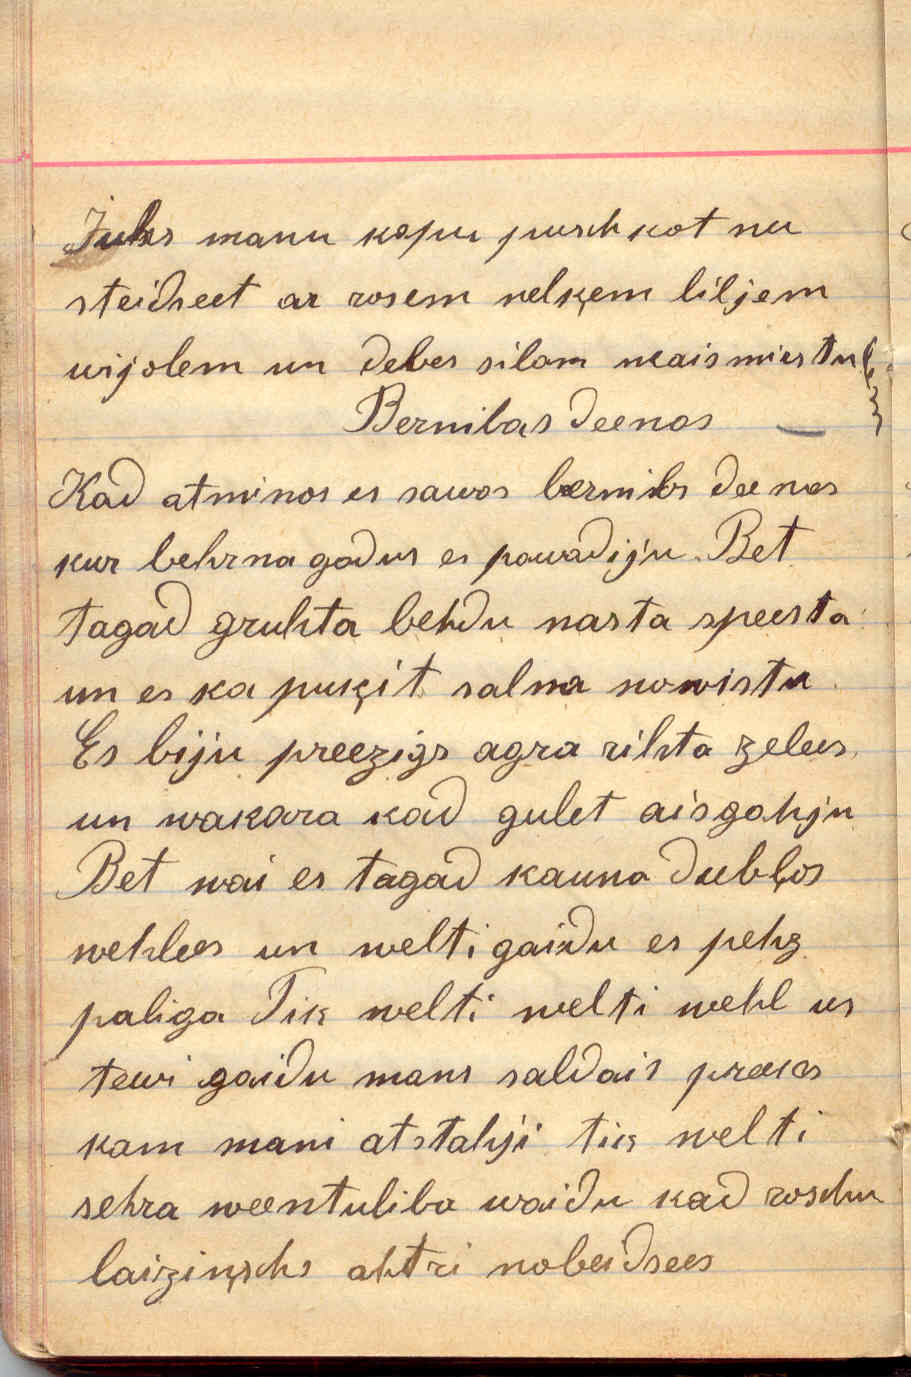 Juhs manu kapu puschkot nu
steidseet ar rosem nelķem liljem
wijolem un debes silam neaismirstu
Bernibas deenas
Kad atminos es sawas bernibs deenas
kur behrna gadus es pawadiju. Bet
tagad gruhta behdu nasta speesta
un es ka puķit salna nowistu.
Es biju preezigs agra rihta zelees
un wakara kad gulet aisgahju
Bet wai es tagad kauna dubļos
wehlees un welti gaidu es pehz
paliga Tik welti welti wehl us
tewi gaidu mans saldais preeks
kam mani atstahji tik welti
sehra weentuliba waidu kad roschu
laiziņschs ahtri nobeidsees